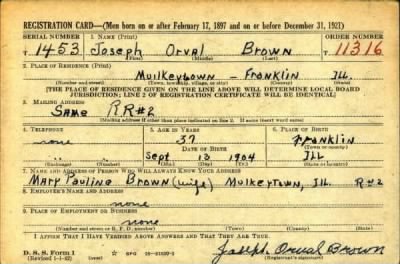 REGISTRATION CARD—(Men born on or after February 17, 1897 and on or before December 31, 1921)
SERIAL NUMBER 1. NAME (Print) ORDER NUMBER
T 1453 Joseph Orval Brown T 11316
(First) (Middle) (Last)
2. PLACE OF RESIDENCE (Print)
Mulkeytown - Franklin Ill.
(Number and street) (Town, township, village, or city) (County) (State)
[THE PLACE OF RESIDENCE GIVEN ON THE LINE ABOVE WILL DETERMINE LOCAL BOARD
JURISDICTION; LINE 2 OF REGISTRATION CERTIFICATE WILL BE IDENTICAL]
3. MAILING ADDRESS
Same RR#2
[Mailing address if other than place indicated on line 2. If same insert word same]
4. TELEPHONE 5. AGE IN YEARS 6. PLACE OF BIRTH
none 37 Franklin
DATE OF BIRTH (Town or county)
" " Sept 13 1904 Ill
(Mo.) (Day) (Yr.) (State or country)
7. NAME AND ADDRESS OF PERSON WHO WILL ALWAYS KNOW YOUR ADDRESS
Mary Pauline Brown (wife) Mulkeytown, Ill. R#2
8. EMPLOYER'S NAME AND ADDRESS
none
9. PLACE OF EMPLOYMENT OR BUSINESS
none
(Number and street or R. F. D. number) (Town) (County) (State)
I AFFIRM THAT I HAVE VERIFIED ABOVE ANSWERS AND THAT THEY ARE TRUE.
D. S. S. Form 1
(Revised 1-1-42) GPO Joseph Orval Brown
(Registrant's signature)